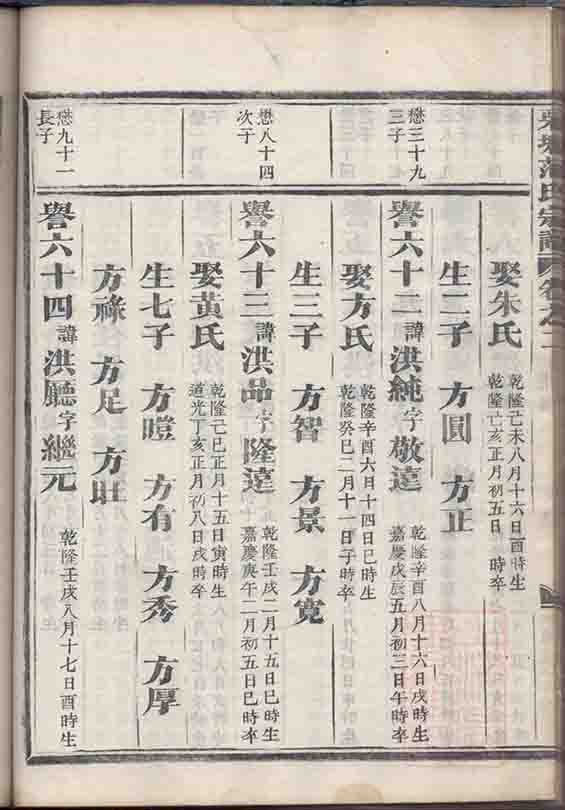 范氏宗譜 卷之二
娶朱氏 乾隆己未八月十六日酉時生
乾隆己亥正月初五日 時卒
生二子 方圓 方正
懋三十九
三子
譽六十二 諱洪純字敬遠 乾隆辛酉八月十六日戌時生
嘉慶戊辰五月初三日午時卒
娶方氏 乾隆辛酉六月十四日巳時生
乾隆癸巳二月十一日子時卒
生三子 方智 方景 方寬
懋八十四
次子
譽六十三 諱洪品字隆遠 乾隆壬戌二月十五日巳時生
嘉慶庚午二月初五日巳時卒
娶黃氏 乾隆己巳正月十五日寅時生
道光丁亥正月初八日戌時卒
生七子 方暟 方有 方秀 方厚
方祿 方足 方旺
懋九十一
長子
譽六十四 諱洪廳字繼元 乾隆壬戌八月十七日酉時生